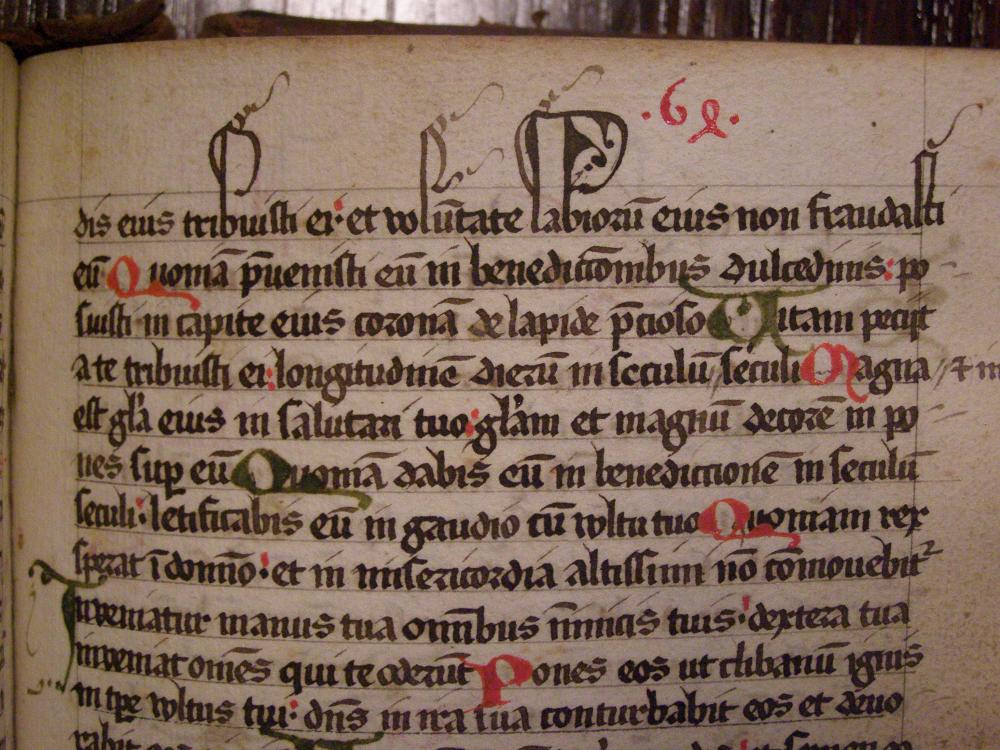 .69.
dis eius tribuisti ei: et volūtate labiorū eius non fraudasti
eū Quoniā p̄uenisti eū in benedictōnibus dulcedinis: po
suisti in capite eius coronā de lapide p̄cioso Vitam peciit
a te tribuisti ei: longitudinē dierū in sēculū // sēculi Magna // ⁊ in
est gl̄a eius in salutari tuo: gl̄am et magnū decorē in po
nes sup eū Quoniā dabis eū in benedictionē in seculū
seculi: letificabis eū in gaudio cū vltu tuo Quoniam rex
sperat ī domino: et in misericordia altissimi nō cōmouebit᷑
Inveniatur manus tua omībus īnimicis tuis: dextera tua
inveniat omēs qui te oderūt Pones eos ut clibanū ignis
in tp̄e vltus tui: dn̄s in ira tua conturbabit eos et deuo
rabit eos